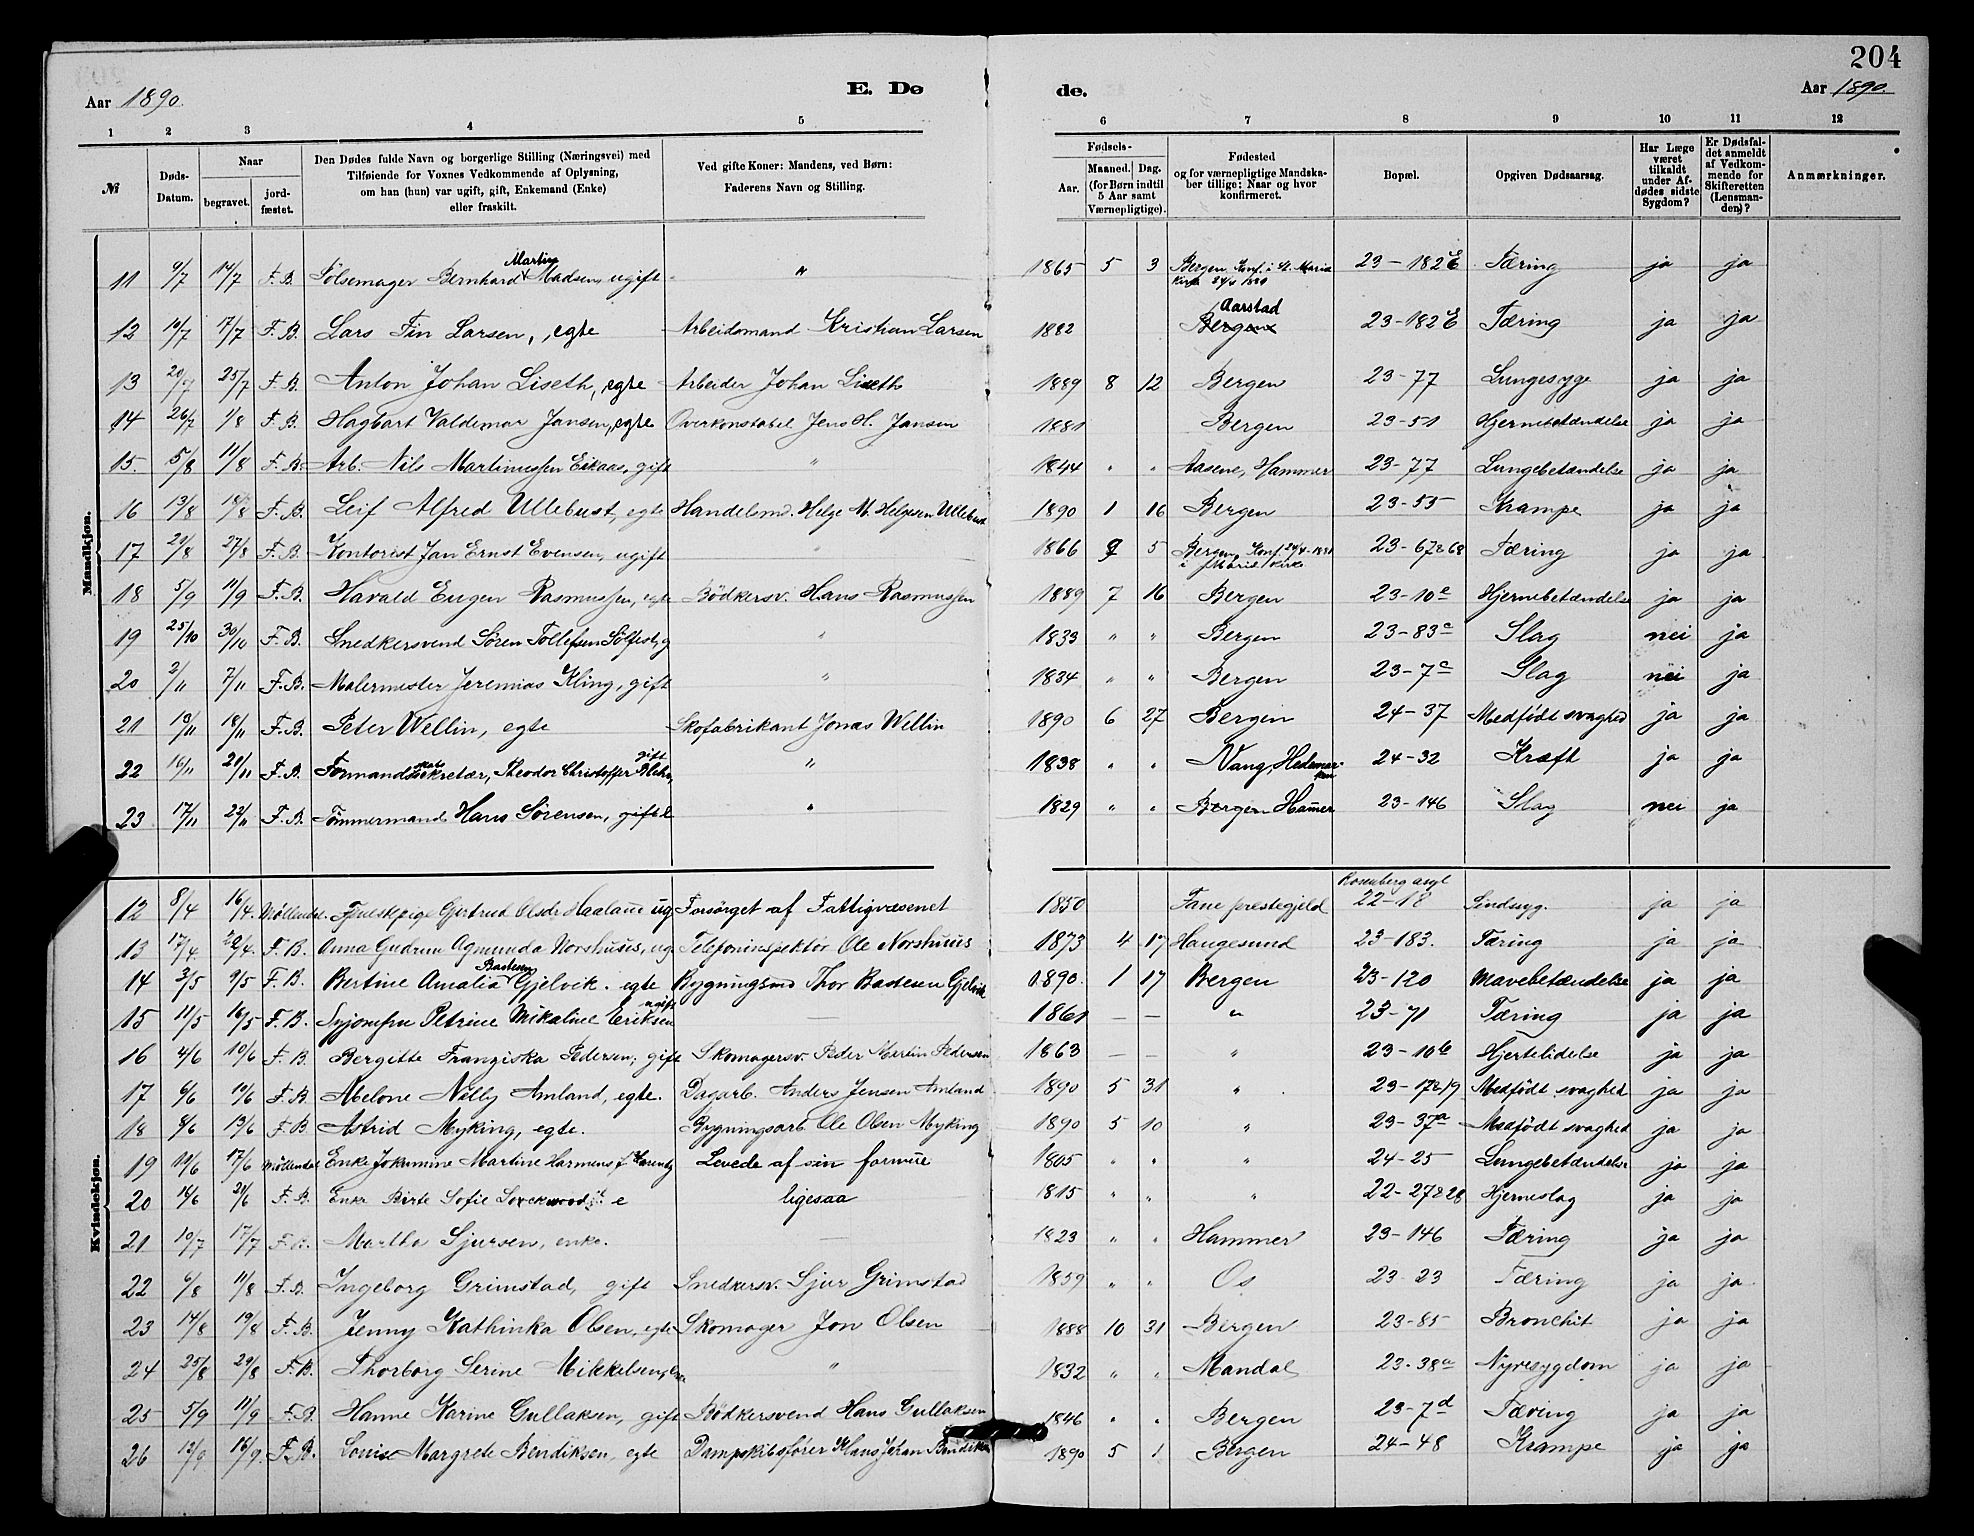 204
Aar 1890.
E. Dø
de.
Aar 1890.
1 2 3 4 5 6 7 8 9 10 11 12
№
Døds-Datum.
Naar
begravet.
jord-fæstet.
Den Dødes fulde Navn og borgerlige Stilling (Næringsvei) med
Tilføiende for Voxnes Vedkommende af Oplysning,
om han (hun) var ugift, gift, Enkemand (Enke)
eller fraskilt.
Ved gifte Koner: Mandens, ved Børn:
Faderens Navn og Stilling.
Fødsels-
Aar.
Maaned. Dag.
(for Børn indtil
5 Aar samt
Værnepligtige).
Fødested
og for værnepligtige Mandska-
ber tillige: Naar og hvor
konfirmeret.
Bopæl.
Opgiven Dødsaarsag.
Har Læge
været
tilkaldt
under Af-
dødes sidste
Sygdom?
Er Dødsfal-
det anmeldt
af Vedkom-
mende for
Skifteretten
(Lensman-
den)?
Anmærkninger.
Mandkjøn.
11 9/7 14/7 F. B. Pølsemager Bernhard Martin Madsen, ugift " 1865 5 3 Bergen, Konf. i St. Maria Kirke 1880 23-182 E Tæring ja ja
12 10/7 17/7 F. B. Lars Fin Larsen, egte Arbeidsmand Kristian Larsen 1882 Bergen Aarstad 23-182 E Tæring ja ja
13 20/7 25/7 F. B. Anton Johan Liseth, egte Arbeider Johan Liseth 1889 8 12 Bergen 23-77 Lungesyge ja ja
14 26/7 1/8 F. B. Hagbart Valdemar Jansen, egte Overkonstabel Jens H. Jansen 1881 Bergen 23-51 Hjernebetændelse ja ja
15. 5/8 11/8 F. B. Arb. Nils Martinussen Eikaas, gift " 1844 " " Aasene, Hammer 23-77 Lungebetændelse ja ja
16 13/8 18/8 F. B. Leif Alfred Ullebust, egte Handelsmd. Helge M. Helgesen Ullebust 1890 1 16 Bergen 23-55 Krampe ja ja
17 20/8 27/8 F. B. Kontorist Jan Ernst Evensen, ugift " 1866 9 5 Bergen, Konf. 24/4-1881 i Mariekirke 23-67&68 Tæring ja ja
18 5/9 11/9 F. B. Harald Eugen Rasmussen, egte Bödkersv. Hans Rasmussen 1889 7 16 Bergen 23-10 e Hjernebetændelse ja ja
19 25/10 30/10 F. B. Snedkersvend Sören Tollefsen Sölfest, g " 1833 " " Bergen 23-83 c Slag nei ja
20 2/11 7/11 F. B. Malermester Jeremias Kling, gift " 1834 " " Bergen 23-7 c Slag nei ja
21 13/11 18/11 F. B. Peter Wellin, egte Skofabrikant Jonas Wellin 1890 6 27 Bergen 24-37 Medfödt svaghed ja ja
22 16/11 20/11 F. B. Formandskabssekretær, Theodor Christoffer gift " 1838 " " Vang, Hedemarken 24-32 Kræft ja ja
23 17/11 22/11 F. B. Tömmermand Hans Sörensen, gift " 1829 " " Bergen Hamer 23-146 Slag nei ja
Kvindekjøn.
12 8/4 16/4. Möllendal Gjertrud Olsdr. Haaland ug Forsörget af Fattigvæsenet 1850 Fane prestegjeld Rosenberg asyl 22-18 Sindssyg. ja ja
13 17/4. 22/4. F. B. Anna Gudrun Agmunda Norshuus, ug Telefoninspektör Ole Norshuus 1873 4 17 Haugesund 23-183. Tæring ja ja
14 3/5 9/5 F. B. Bertine Amalia Bastesen Gjelvik. egte Bygningsmd Thor Bastesen Gjelvik 1890. 1 17 Bergen 23-120 Mavebetændelse ja ja
15 11/5 16/5 F. B. Syjomfru Petrine Mikaline Eriksen ugift — 1861 — — " 23-71 Tæring ja ja
16 4/6 10/6 F. B. Bergitte Franziska Pedersen, gift Skomagersv. Peder Martin Pedersen 1863 — — " 23-10 b Hjertelidelse ja ja
17 6/6 10/6 F. B Abelone Nelly Amland, egte. Dagarb. Anders Jensen Amland 1890 5 31 " 23-17&19 Medfödt svaghed ja ja
18 8/6 13/6 F. B. Astrid Myking, egte. Bygningsarb. Ole Olsen Myking 1890 5 10 " 23-37 a Medfödt svaghed ja ja
19 11/6 17/6 Möllendal Enke Jokumine Martine Harmens Levede af sin formue 1805 " " " 24-25 Lungebetændelse ja ja
20 16/6 21/6 F. B. Enke Birte Sofie ligesaa 1815 " " " 22-27&28 Hjerneslag ja ja
21 10/7 17/7 F. B. Martha Sjursen, enke. 1823 " " Hammer 23-146 Tæring ja ja
22 6/8 11/8 F. B. Ingeborg Grimstad, gift Snedkersv. Sjur Grimstad 1859 " " Os 23-23 Tæring ja ja
23 14/8 19/8 F. B. Jenny Kathinka Olsen, egte Skomager Jon Olsen 1888 10 31 Bergen 23-85 Bronchit ja ja
24 25/8 29/8 F. B. Thorborg Serine Mikkelsen, Enke " 1832 " " Mandal 23-38 a Nyresygdom ja ja
25 5/9 11/9 F. B. Hanne Karine Gullaksen, gift Bödkersvend Hans Gullaksen 1846 " " Bergen 23-7 d Tæring ja ja
26 12/9 16/9. F. B. Louise Margrete Bendiksen, egte Dampskibsförer Hans Johan Bendiksen 1890 5 1 Bergen 24-48 Krampe ja ja